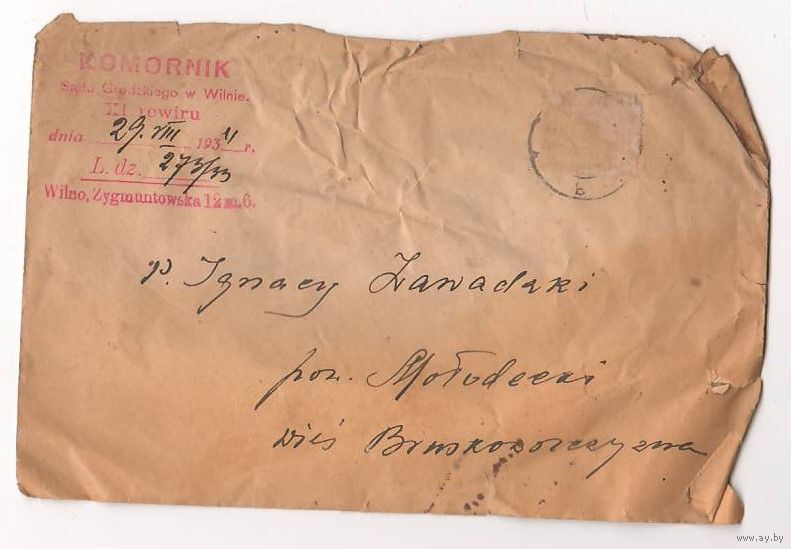 KOMORNIK
Sądu Grodzkiego w Wilnie.
XI rewiru
dnia 29. VIII 1934 r.
L. dz. 273/33
Wilno, Zygmuntowska 12 m. 6.
b
P. Ignacy Zawadzki
pow. Mołodecki
wieś
www.ay.by